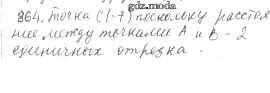 gdz.moda
864. Точка С(-7) поскольку расстоя
ние между точками А и В - 2
единичных отрезка.